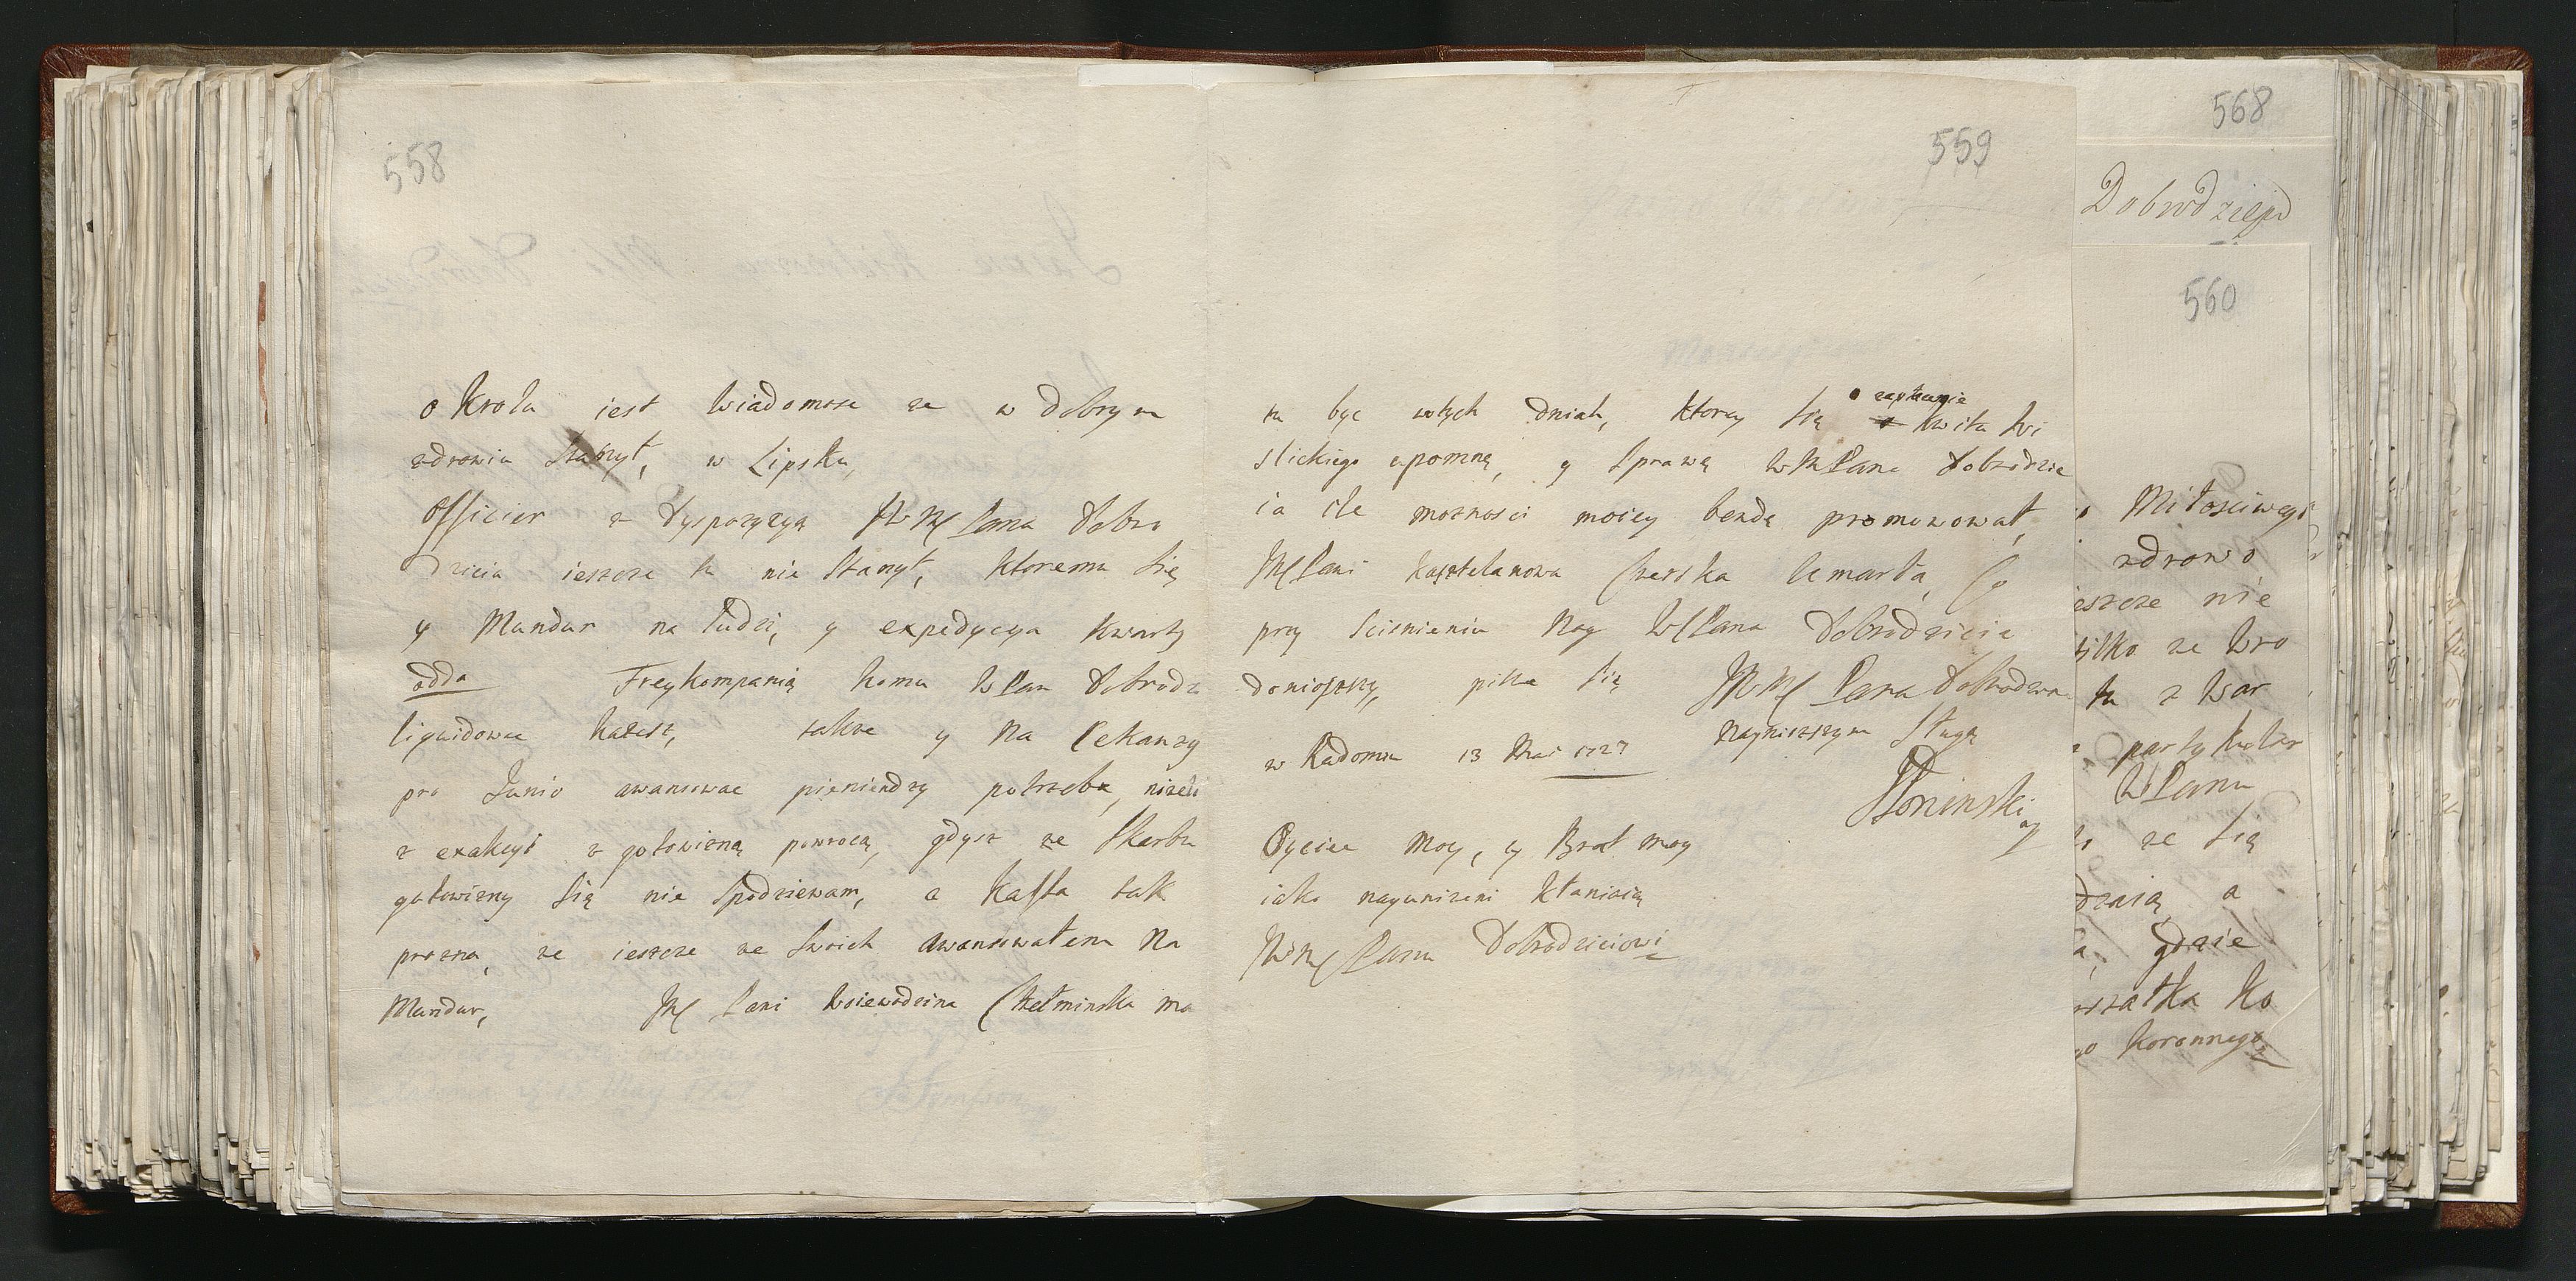 558
o Krolu iest wiadomosc ze w dobrym
zdrowiu stanył, w Lipsku,
Officier z dyspozycyą JWM Pana dobro
dzieia ieszcze tu nie stanył, ktoremu się
y Mundur na ludzi, y expedycya kwarty
odda Freykompanią komu WPan dobrodz
liquidowac każesz, takze y na Lekarzy
pro Junio awansowac pieniendzy potrzeba, nizeli
z exakcyi z gotowizną powrocą, gdysz ze skarbu
gotowizny się nie spodziewam, a kassa tak
prozna, ze ieszcze ze swoich awansowałem na
Mundur, JM Pani Woiewodzina Chełminska ma
559
tu byc w tych dniah, ktorey się o zapłacenie kwitu Wi
slickiego upomnę, y sprawę WMPana dobrodzie
ia ile moznosci moiey bendę promowował,
JMPani kasztelanowa Czerska umarła, Co
przy scisnieniu Nog WPana Dobrodzieia
doniosszy, pisze się JWM Pana dobrodzieia
w Radomiu 13 Mai 1727 naynizszym sługą
Słoninski
Oyciec moy, y Brat moy
iako nayunizeni kłaniaią
JWM Panu Dobrodzieiowi
568
Dobrodzieju
560
Miłosciwego
zdrowo
ieszcze nie
tilko ze Wro
tu z War
partykular
WPanu
ze się
dzaią, a
gdzie
wzatka ko
go koronnego